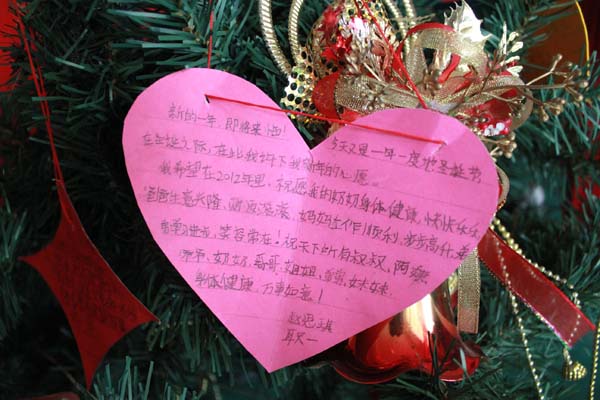 新的一年，即将来临！
今天又是一年一度的圣诞节，
在圣诞之际，在此我许下我新年的心愿。
我希望在2012年里，祝愿我的奶奶身体健康，快快乐乐
爸爸生意兴隆，财源滚滚，妈妈工作顺利，步步高升，
笑容常在！祝天下所有叔叔，阿姨
爷爷，奶奶，哥哥，姐姐，妹妹，
身体健康，万事如意！